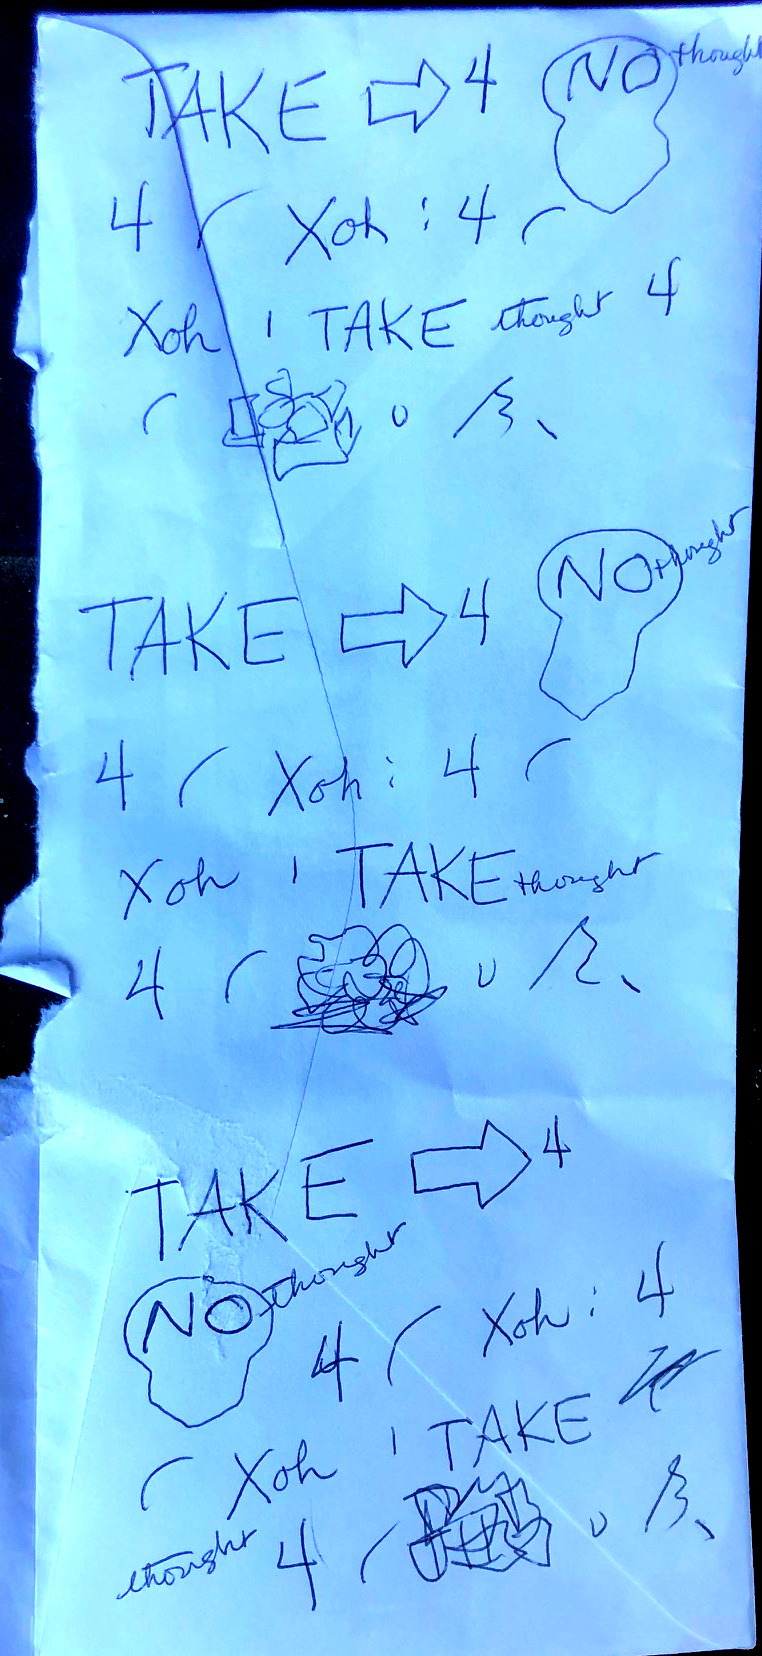 TAKE ⇨ 4 NO thought
4 ( Xoh : 4 (
Xoh ı TAKE thought 4
(
TAKE ⇨ 4 NO thought
4 ( Xoh : 4 (
Xoh ı TAKE thought
4 (
TAKE ⇨ 4
NO thought 4 ( Xoh : 4
( Xoh ı TAKE
thought 4 (